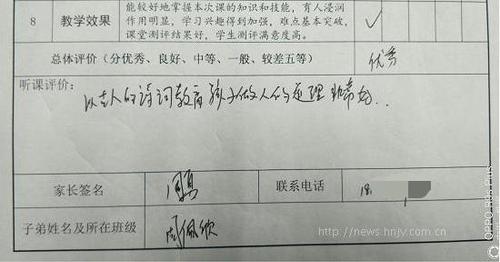 8 教学效果 能较好地掌握本次课的知识和技能，育人浸润
作用明显，学习兴趣得到加强，难点基本突破，
课堂测评结果好，学生测评满意度高。
✓
总体评价（分优秀、良好、中等、一般、较差五等） 优秀
听课评价：
以古人的诗词教育孩子做人的道理 非常好..
家长签名 周勇 联系电话 18
子弟姓名及所在班级 周佩欣
http://news.hnjy.com.cn
OPPO R11s Plus